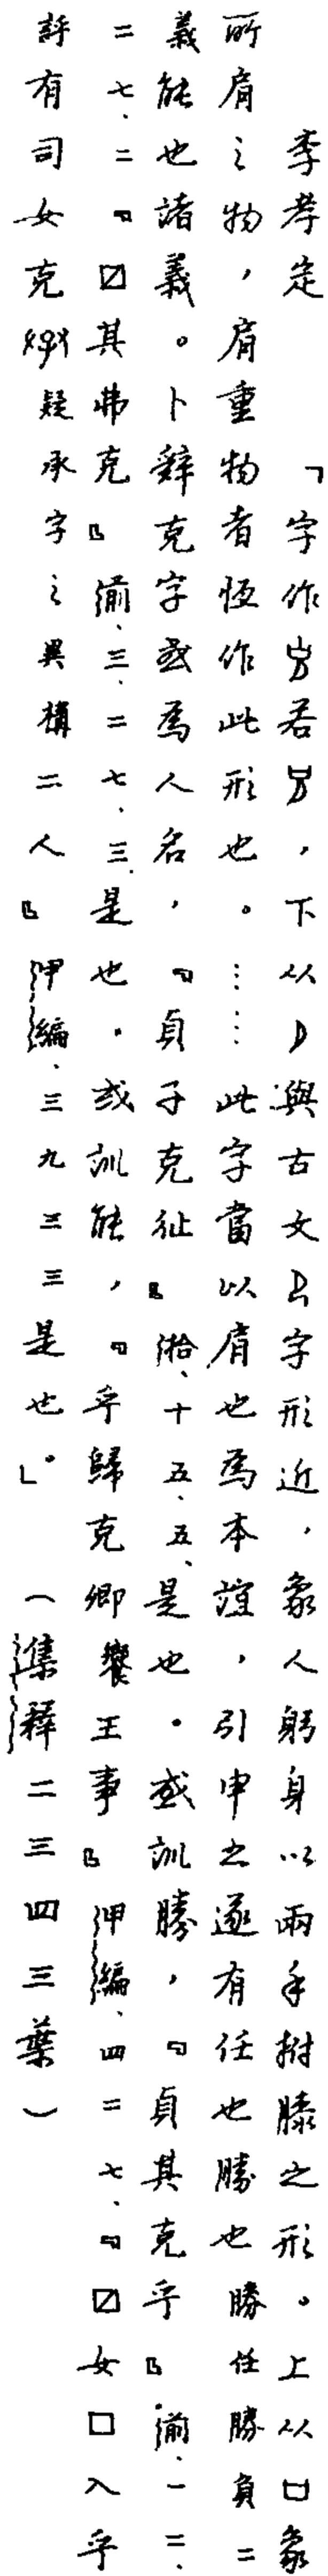 李孝定　「字作若，下从與古文字形近，象人躬身以兩手拊膝之形。上从口象
所肩之物，肩重物者恆作此形也。……此字當以肩也為本誼，引申之遂有任也勝也勝任勝負二
義能也諸義。卜辭克字或為人名，『貞子克𢓊』潲、十五、五、是也。或訓勝，『貞其克乎』前、一二、
二七、二『☒其弗克』前、三、二七、三、是也。或訓能，『乎歸克卿饗王事』甲編、四二七、『☒女□入乎
訝有司女克疑承字之異構二人』甲編、三九三三是也」。（集釋二三四三葉）